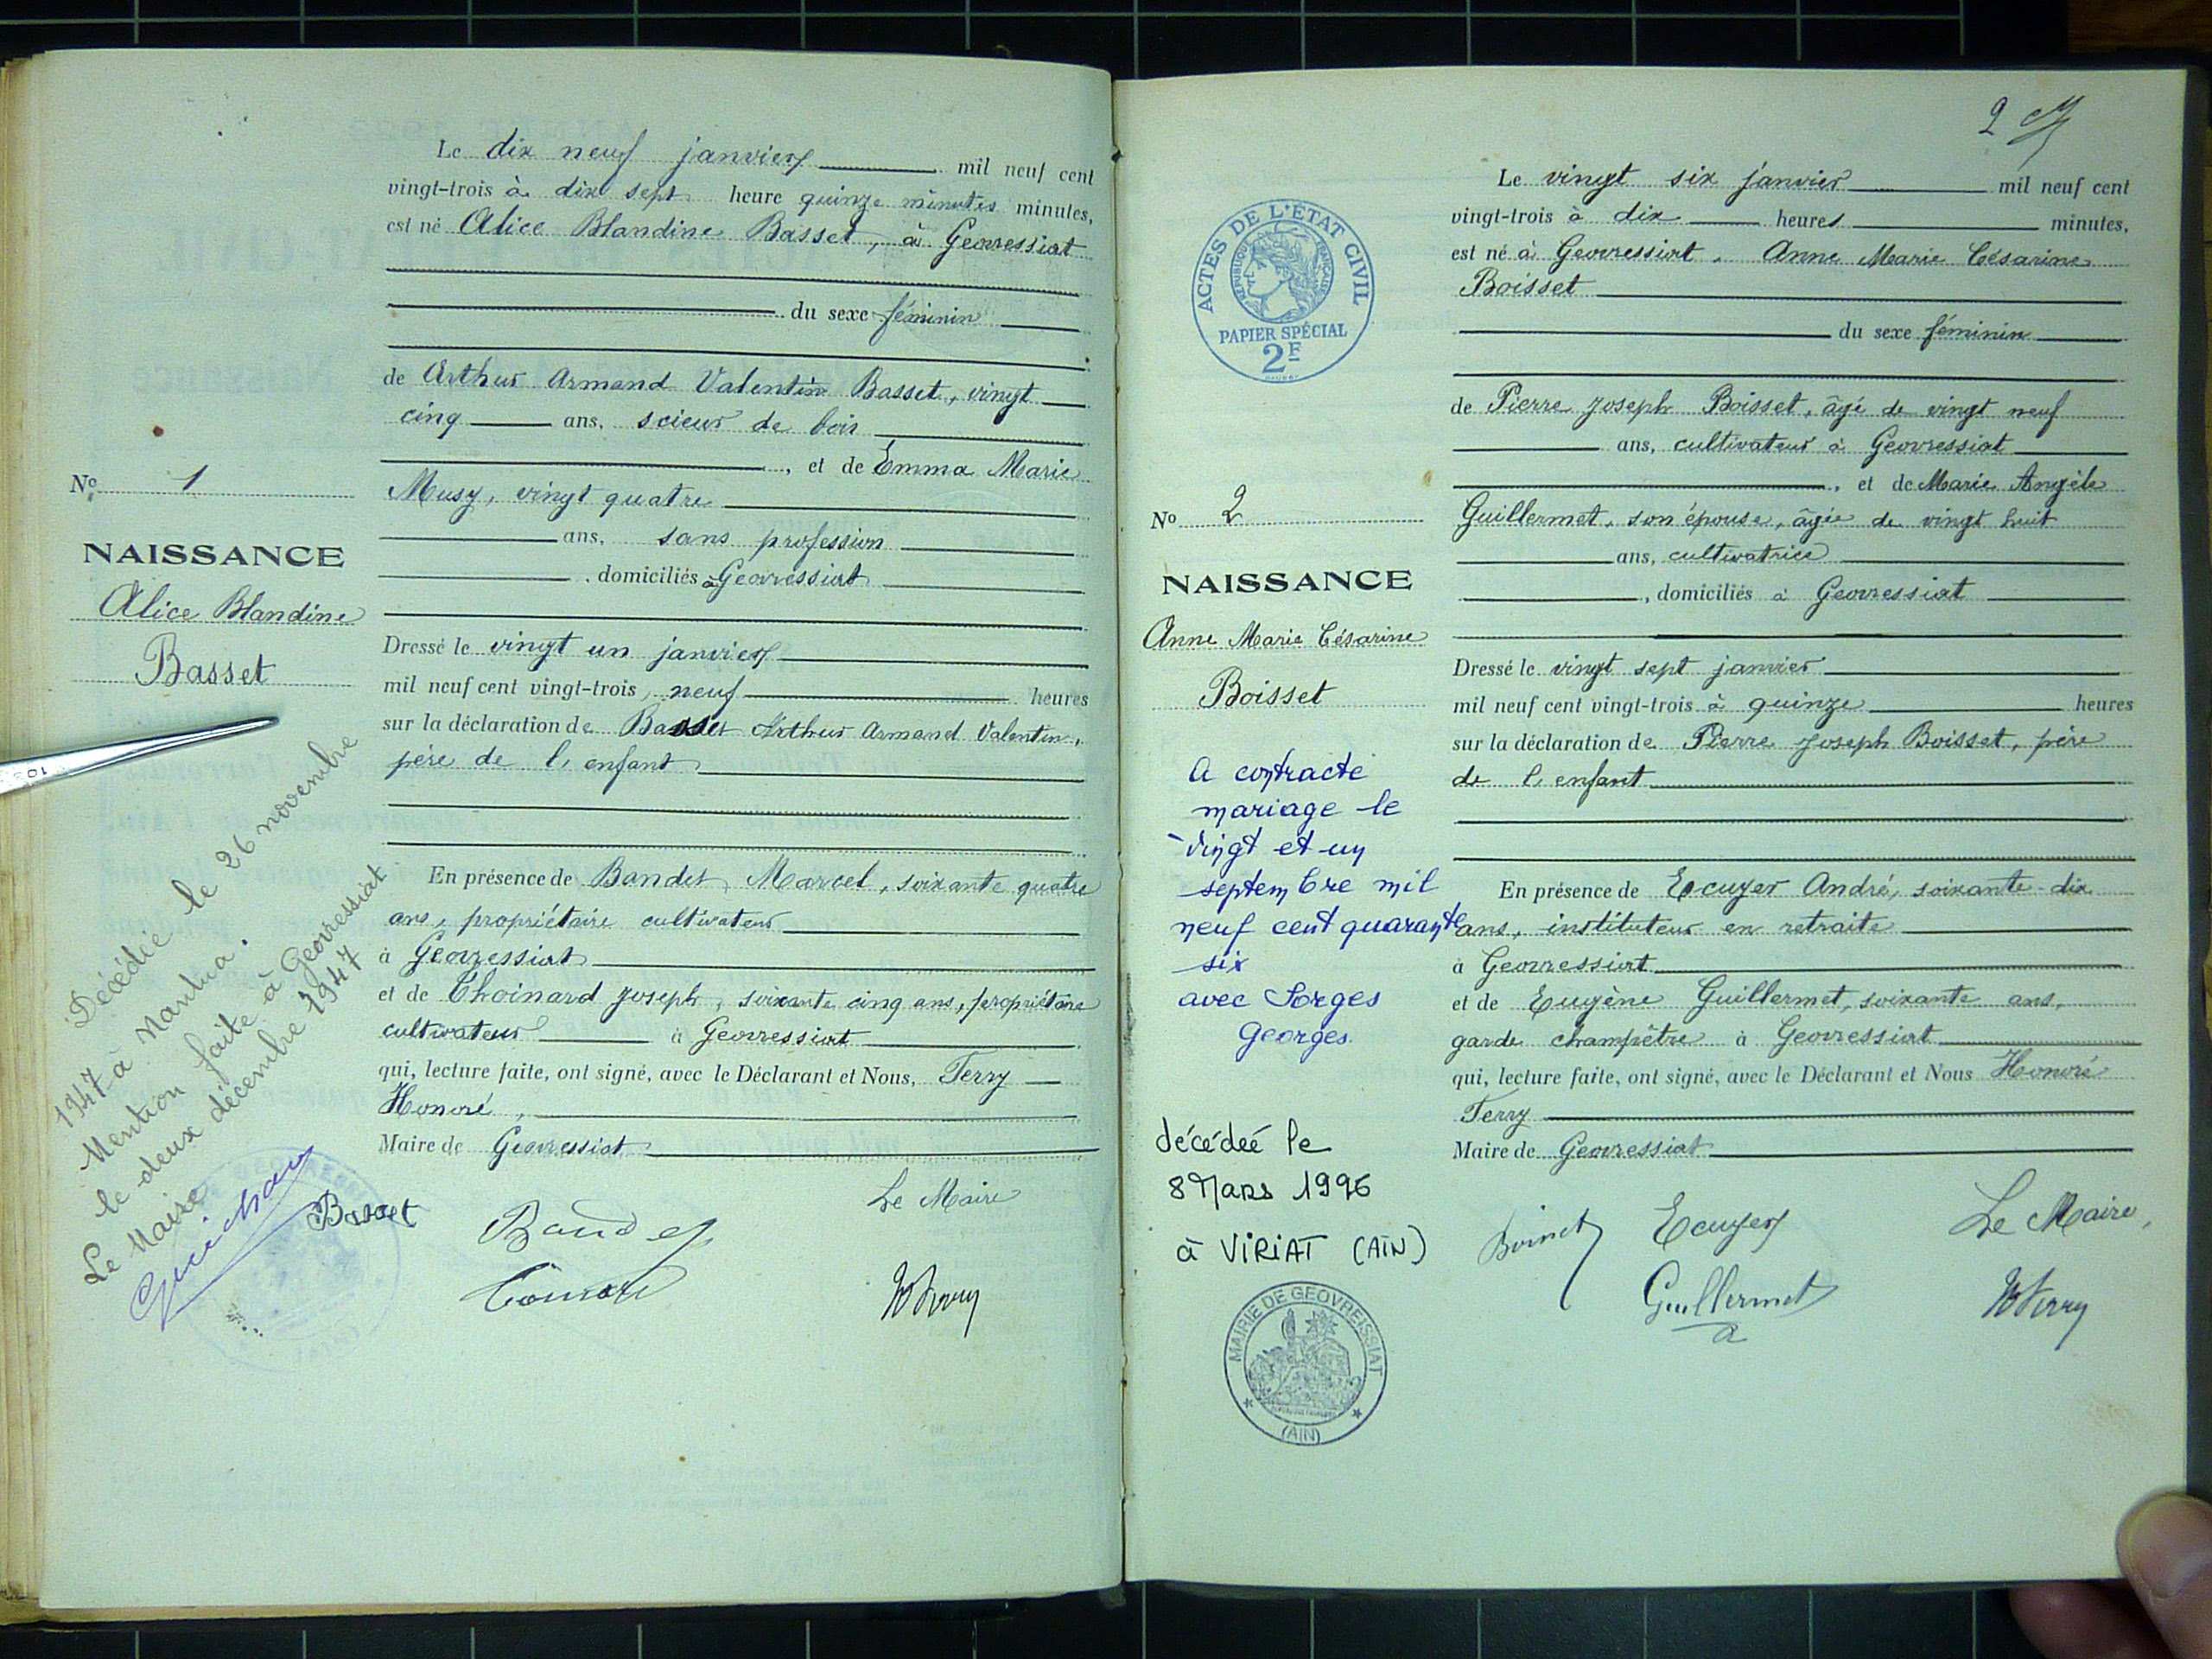 Le dix neuf janvier mil neuf cent
vingt-trois à dix sept heure quinze minutes minutes,
est né Alice Blandine Basset, à Geovressiat
du sexe féminin
de Arthur Armand Valentin Basset, vingt
cinq ans, scieur de bois
, et de Emma Marie
Musy, vingt quatre
ans, sans profession
, domiciliés à Geovressiat
No 1
NAISSANCE
Alice Blandine
Basset
Dressé le vingt un janvier
mil neuf cent vingt-trois, neuf heures
sur la déclaration de Basset Arthur Armand Valentin,
père de l'enfant
En présence de Bandet, Marcel, soixante quatre
ans, propriétaire cultivateur
à Geovressiat
et de Choinard Joseph, soixante cinq ans, propriétaire
cultivateur à Geovressiat
qui, lecture faite, ont signé, avec le Déclarant et Nous, Ferry
Honoré,
Maire de Geovressiat
Décédée le 26 novembre
1947 à Nantua.
Mention faite à Geovressiat
le deux décembre 1947
Le Maire
Basset
Le Maire
2
ACTES DE L'ÉTAT CIVIL
RÉPUBLIQUE FRANÇAISE
PAPIER SPÉCIAL
2F
Le vingt six janvier mil neuf cent
vingt-trois à dix heures minutes,
est né à Geovressiat, Anne Marie Césarine
Boisset
du sexe féminin
de Pierre Joseph Boisset, âgé de vingt neuf
ans, cultivateur à Geovressiat
, et de Marie Angèle
Guillermet, son épouse, âgée de vingt huit
ans, cultivatrice
, domiciliés à Geovressiat
No 2
NAISSANCE
Anne Marie Césarine
Boisset
Dressé le vingt sept janvier
mil neuf cent vingt-trois à quinze heures
sur la déclaration de Pierre Joseph Boisset, père
de l'enfant
En présence de Ecuyer André, soixante-dix
ans, instituteur en retraite
à Geovressiat
et de Eugène Guillermet, soixante ans,
garde champêtre à Geovressiat
qui, lecture faite, ont signé, avec le Déclarant et Nous Honoré
Ferry
Maire de Geovressiat
a contracté
mariage le
vingt et un
septembre mil
neuf cent quarante
six
avec Sorges
Georges.
décédeé le
8 Mars 1996
à VIRIAT (AIN)
Ecuyer
Guillermet
Le Maire,
MAIRIE DE GEOVREISSIAT
(AIN)